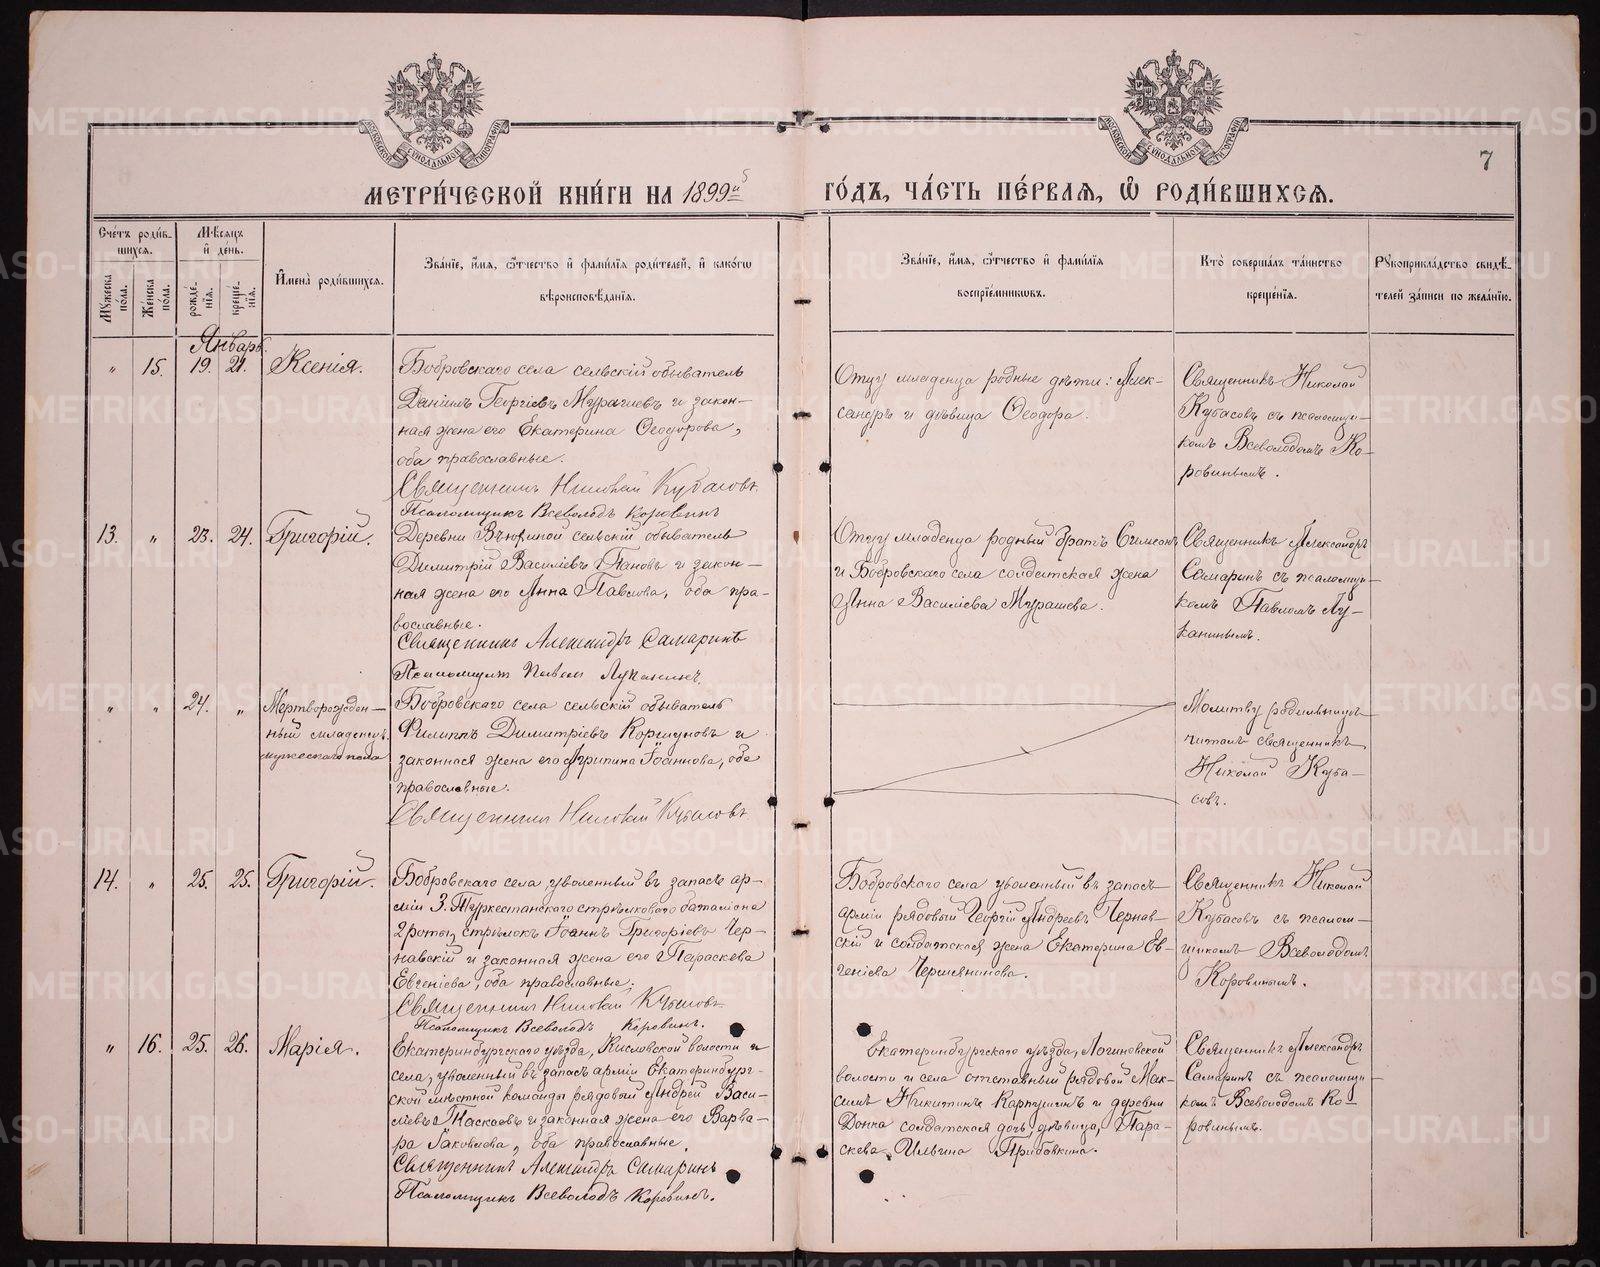 МОСКОВСКОЙ СѴНОДАЛЬНОЙ ТИПОГРАФІИ
МОСКОВСКОЙ СѴНОДАЛЬНОЙ ТИПОГРАФІИ
7
МЕТРИ́ЧЕСКОЙ КНИ́ГИ НА 1899й
ГО́ДЪ, ЧА́СТЬ ПЕ́РВАѦ, Ѽ РОДИ́ВШИХСѦ.
Сче́тъ роди́в-
шихсѧ.
Мꙋжеска по́ла.
Же́нска по́ла.
Мѣ́сѧцъ
и҆ де́нь.
рожде́-
нїѧ.
креще́-
нїѧ.
И҆мена̀ роди́вшихсѧ.
Зва́нїе, и҆́мѧ, ѻ҆́тчество и҆ фамі́лїѧ роди́телей, и҆ како́гѡ
вѣроисповѣ́данїѧ.
Зва́нїе, и҆́мѧ, ѻ҆́тчество и҆ фамі́лїѧ
воспрїе́мниковъ.
Кто̀ соверша́лъ та́инство
креще́нїѧ.
Рꙋкоприкла́дство свидѣ́-
телей за́писи по жела́нїю.
Январь.
" 15. 19. 21. Ксенія.
Бобровскаго села сельскій обыватель
Даніилъ Георгіевъ Мурашевъ и закон-
ная жена его Екатерина Ѳеодорова,
оба православные.
Священникъ Николай Кубасовъ
Псаломщикъ Всеволодъ Коровинъ
Отцу младенца родные дѣти: Алек-
сандръ и дѣвица Ѳеодора.
Священникъ Николай
Кубасовъ съ псаломщи-
комъ Всеволодомъ Ко-
ровинымъ.
13. " 23. 24. Григорій.
Деревни Вьюхиной сельскій обыватель
Димитрій Василіевъ Пановъ и закон-
ная жена его Анна Павлова, оба пра-
вославные.
Священникъ Александръ Самаринъ
Псаломщикъ Павелъ Луканинъ.
Отцу младенца родный братъ Симеонъ
и Бобровскаго села солдатская жена
Анна Василіева Мурашева.
Священникъ Александръ
Самаринъ съ псаломщи-
комъ Павломъ Лу-
канинымъ.
" " 24. " Мертворожден-
ный младенецъ
мужескаго пола
Бобровскаго села сельскій обыватель
Филиппъ Димитріевъ Коршуновъ и
законная жена его Агрипина Іоаннова, оба
православные.
Священникъ Николай Кубасовъ
Молитву родильницѣ
читалъ священникъ
Николай Куба-
совъ.
14. " 25. 25. Григорій.
Бобровскаго села, уволенный въ запасъ ар-
міи 3. Туркестанскаго стрѣлковаго баталіона
2 роты, стрѣлокъ Іоаннъ Григоріевъ Чер-
навскій и законная жена его Параскева
Евгеніева, оба православные.
Священникъ Николай Кубасовъ
Псаломщикъ Всеволодъ Коровинъ.
Бобровскаго села уволенный въ запасъ
арміи рядовый Георгій Андреевъ Чернав-
скій и солдатская жена Екатерина Ев-
геніева Чермянинова.
Священникъ Николай
Кубасовъ съ псалом-
щикомъ Всеволодомъ
Коровинымъ.
" 16. 25. 26. Марія.
Екатеринбургскаго уѣзда, Кисловской волости и
села, уволенный въ запасъ арміи Екатеринбург-
ской мѣстной команды рядовый Андрей Васи-
ліевъ Паскаевъ и законная жена его Варва-
ра Іаковлева, оба православные.
Священникъ Александръ Самаринъ
Псаломщикъ Всеволодъ Коровинъ.
Екатеринбургскаго уѣзда, Логиновской
волости и села отставный рядовой Мак-
симъ Никитинъ Карпушинъ и деревни
Донка солдатская дочь дѣвица, Пара-
скева Ильина Прибовкина.
Священникъ Александръ
Самаринъ съ псаломщи-
комъ Всеволодомъ Ко-
ровинымъ.
METRIKI.GASO-URAL.RU